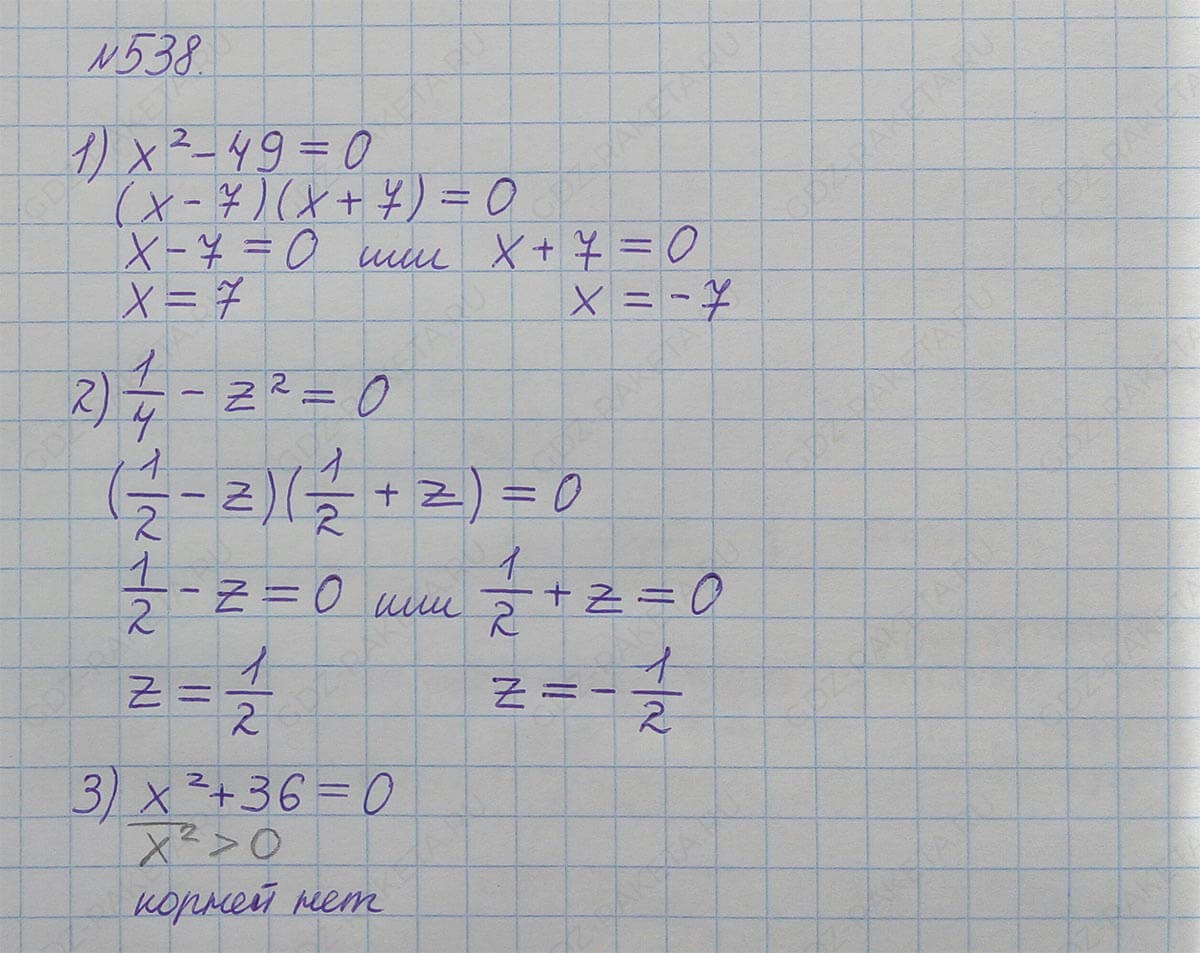 №538.
1) x² - 49 = 0
(x - 7)(x + 7) = 0
x - 7 = 0 или x + 7 = 0
x = 7 x = -7
2) 1/4 - z² = 0
(1/2 - z)(1/2 + z) = 0
1/2 - z = 0 или 1/2 + z = 0
z = 1/2 z = -1/2
3) x² + 36 = 0
x² > 0
корней нет
GDZ-RAKETA.RU